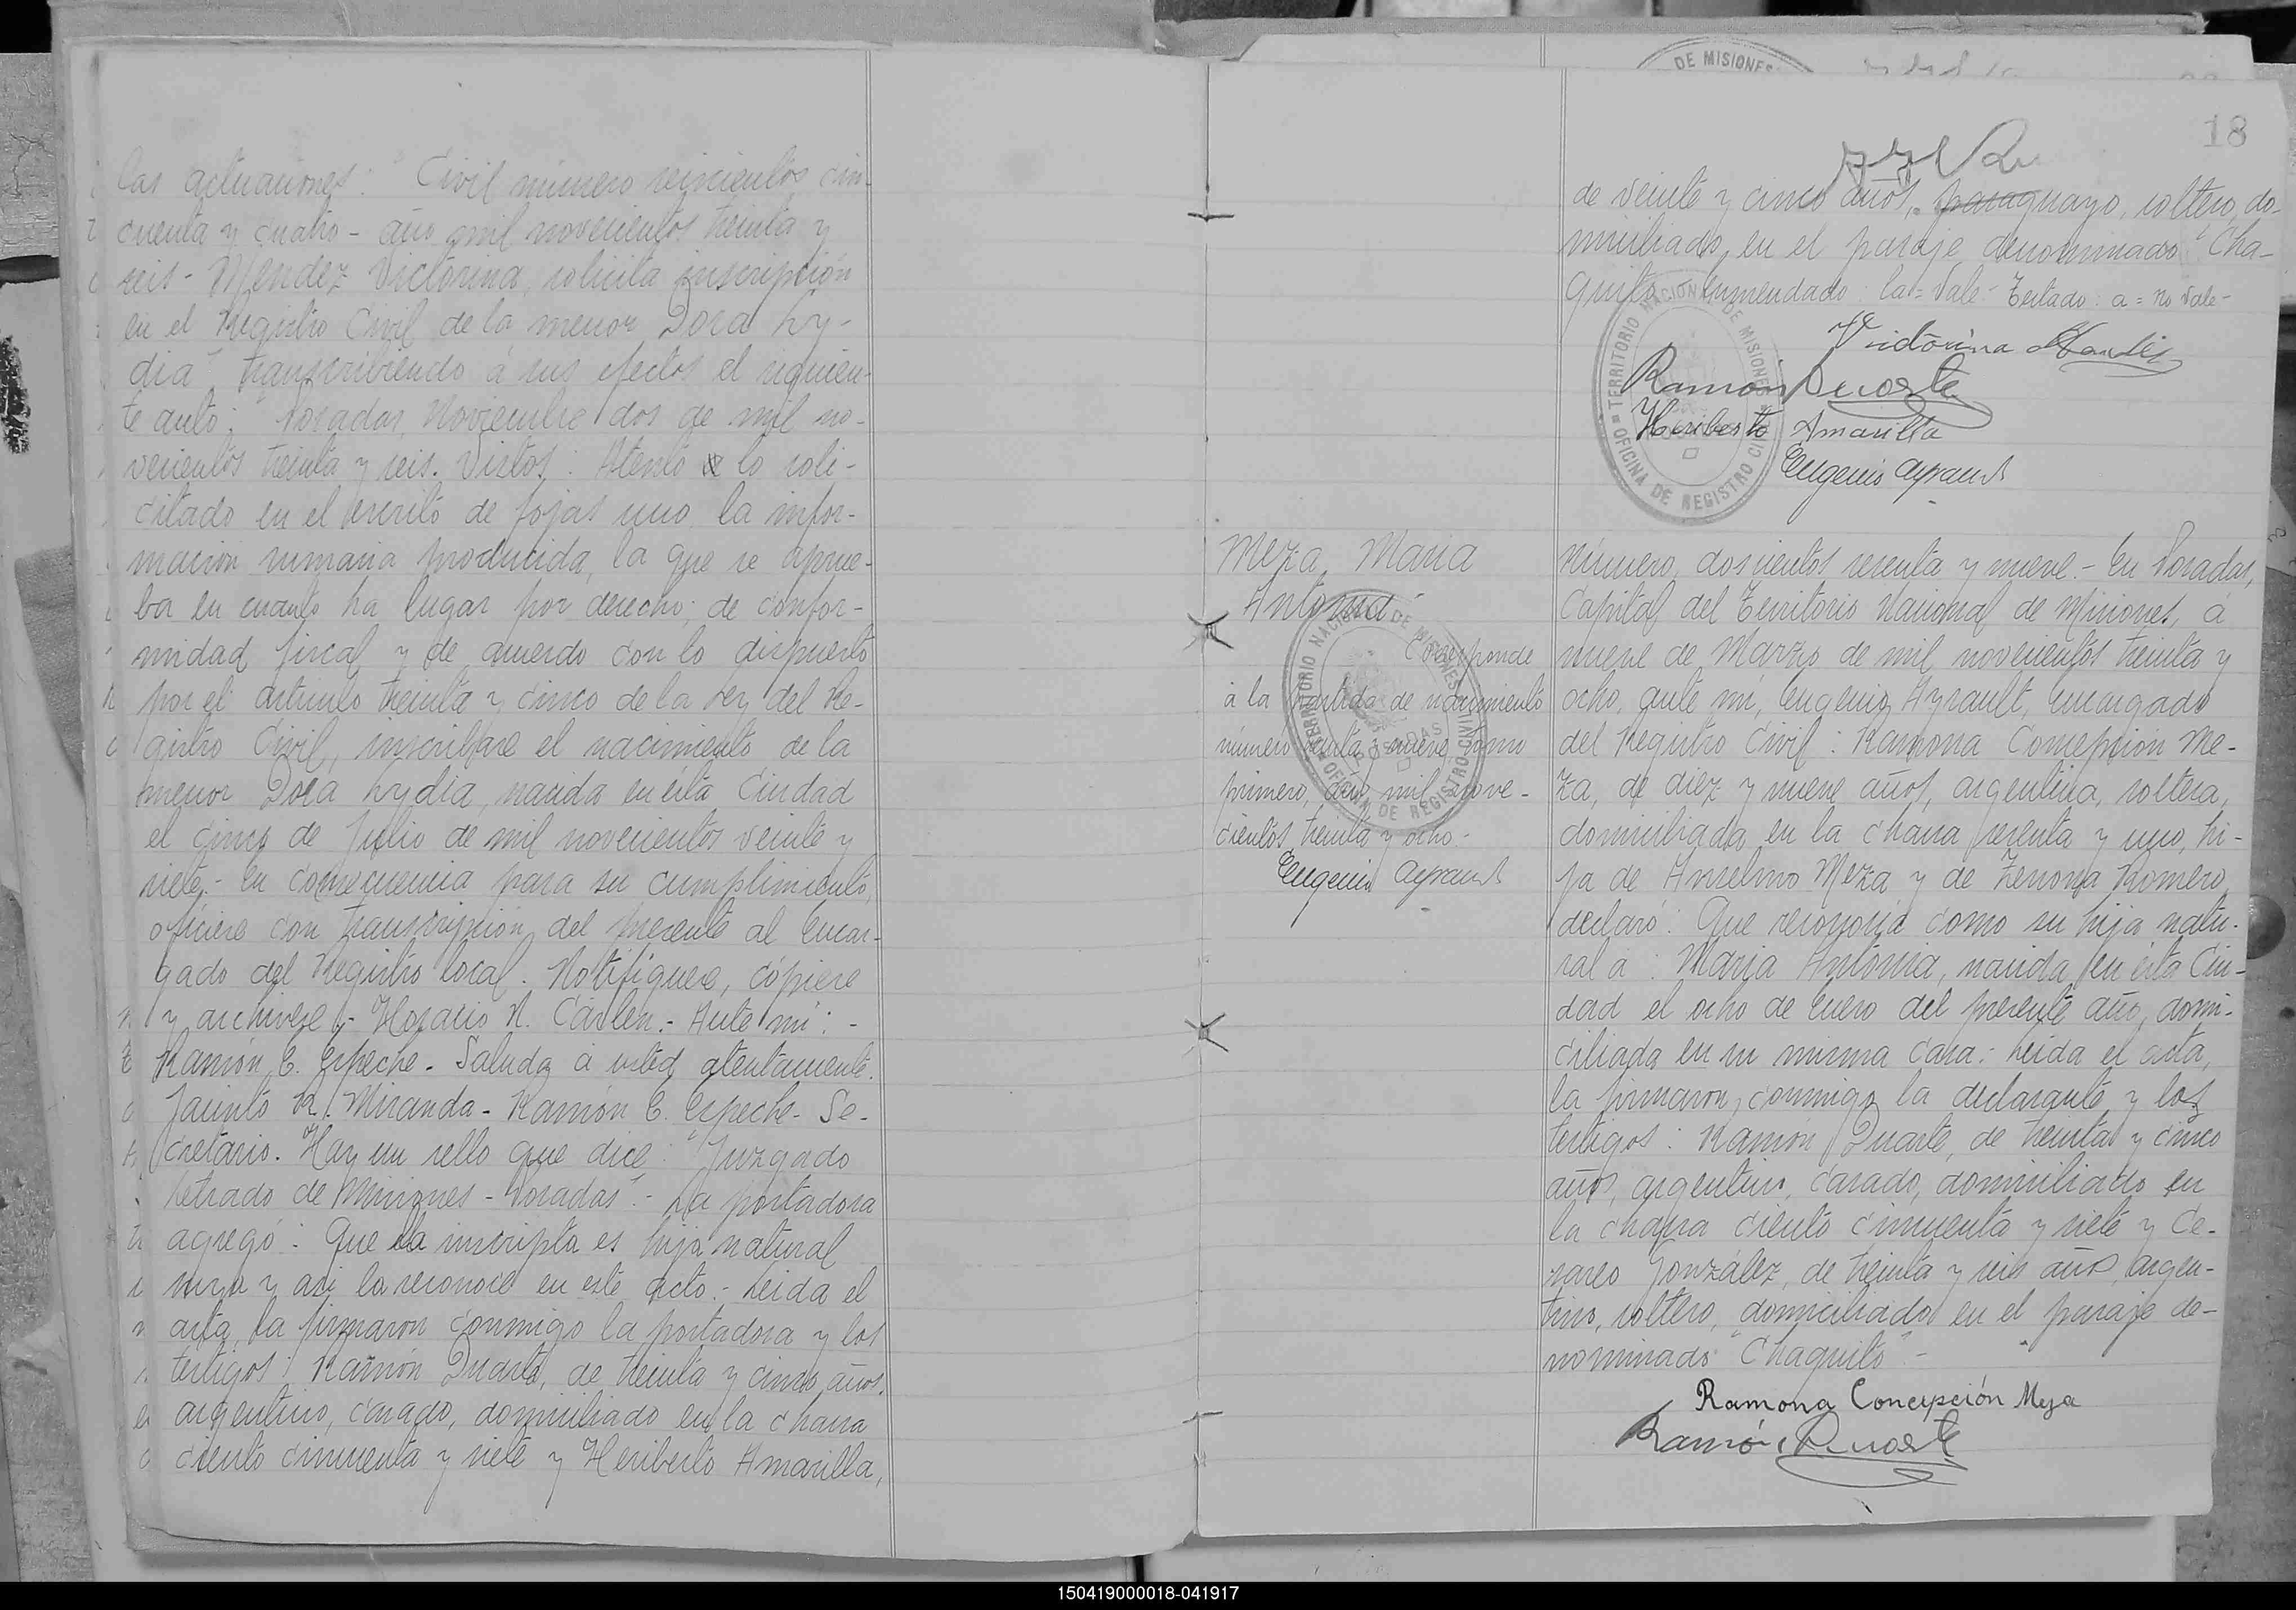 las actuaciones: "Civil número seiscientos cin-
cuenta y cuatro - año mil novecientos treinta y
seis - Méndez Victorina, solicita inscripción
en el Registro Civil de la menor Dora Ly-
dia", transcribiendo á sus efectos el siguien-
te auto: "Posadas, Noviembre dos de mil no-
vecientos treinta y seis. Vistos: Atento a lo soli-
citado en el escrito de fojas uno, la infor-
mación sumaria producida, la que se aprue-
ba en cuanto ha lugar por derecho; de confor-
midad fiscal y de acuerdo con lo dispuesto
por el artículo treinta y cinco de la Ley del Re-
gistro Civil, inscríbase el nacimiento de la
menor Dora Lydia, nacida en ésta Ciudad
el cinco de Julio de mil novecientos veinte y
siete.- En consecuencia para su cumplimiento,
ofíciese con transcripción del presente al Encar-
gado del Registro local. Notifíquese, cópiese
y archívese.- Horacio N. Carlen.- Ante mí: -
Ramón E. Espeche - Saluda á usted atentamente.
Jacinto R. Miranda - Ramón E. Espeche - Se-
cretario. Hay un sello que dice: "Juzgado
Letrado de Misiones - Posadas".- La portadora
agregó: Que la inscripta es hija natural
suya y así la reconoce en este acto.- Leída el
acta, la firmaron conmigo la portadora y los
testigos: Ramón Duarte, de treinta y cinco años,
argentino, casado, domiciliado en la chacra
ciento cincuenta y siete y Heriberto Amarilla,
DE MISIONES
18
de veinte y cinco años, paraguayo, soltero, do-
miciliado, en el paraje denominado "Cha-
quito". Enmendado: la = Vale - Testado: a = no vale -
Victorina Mendez
Ramón Duarte
Heriberto Amarilla
Eugenio Ayrault
TERRITORIO NACIONAL DE MISIONES
OFICINA DE REGISTRO CIVIL
Meza, Maria
Antonia
Corresponde
à la partida de nacimiento
número y nueve, tomo
primero, año mil nove-
cientos treinta y ocho.-
Eugenio Ayrault
TERRITORIO NACIONAL DE MISIONES
POSADAS
OFICINA DE REGISTRO CIVIL
Número, doscientos sesenta y nueve.- En Posadas,
Capital del Territorio Nacional de Misiones, á
nueve de Marzo de mil novecientos treinta y
ocho, ante mí, Eugenio Ayrault, Encargado
del Registro Civil: Ramona Concepción Me-
za, de diez y nueve años, argentina, soltera,
domiciliada en la chacra sesenta y uno, hi-
ja de Anselmo Meza y de Zenona Romero,
declaró: Que reconocía como su hija natu-
ral a: Maria Antonia, nacida en ésta Ciu-
dad el ocho de Enero del presente año, domi-
ciliada en su misma casa.- Leída el acta,
la firmaron, conmigo la declarante y los
testigos: Ramón Duarte, de treinta y cinco
años, argentino, casado, domiciliado en
la chacra ciento cincuenta y siete y Ce-
sareo González, de treinta y seis años, argen-
tino, soltero, domiciliado en el paraje de-
nominado "Chaquito" -
Ramona Concepción Meza
Ramón Duarte
150419000018-041917